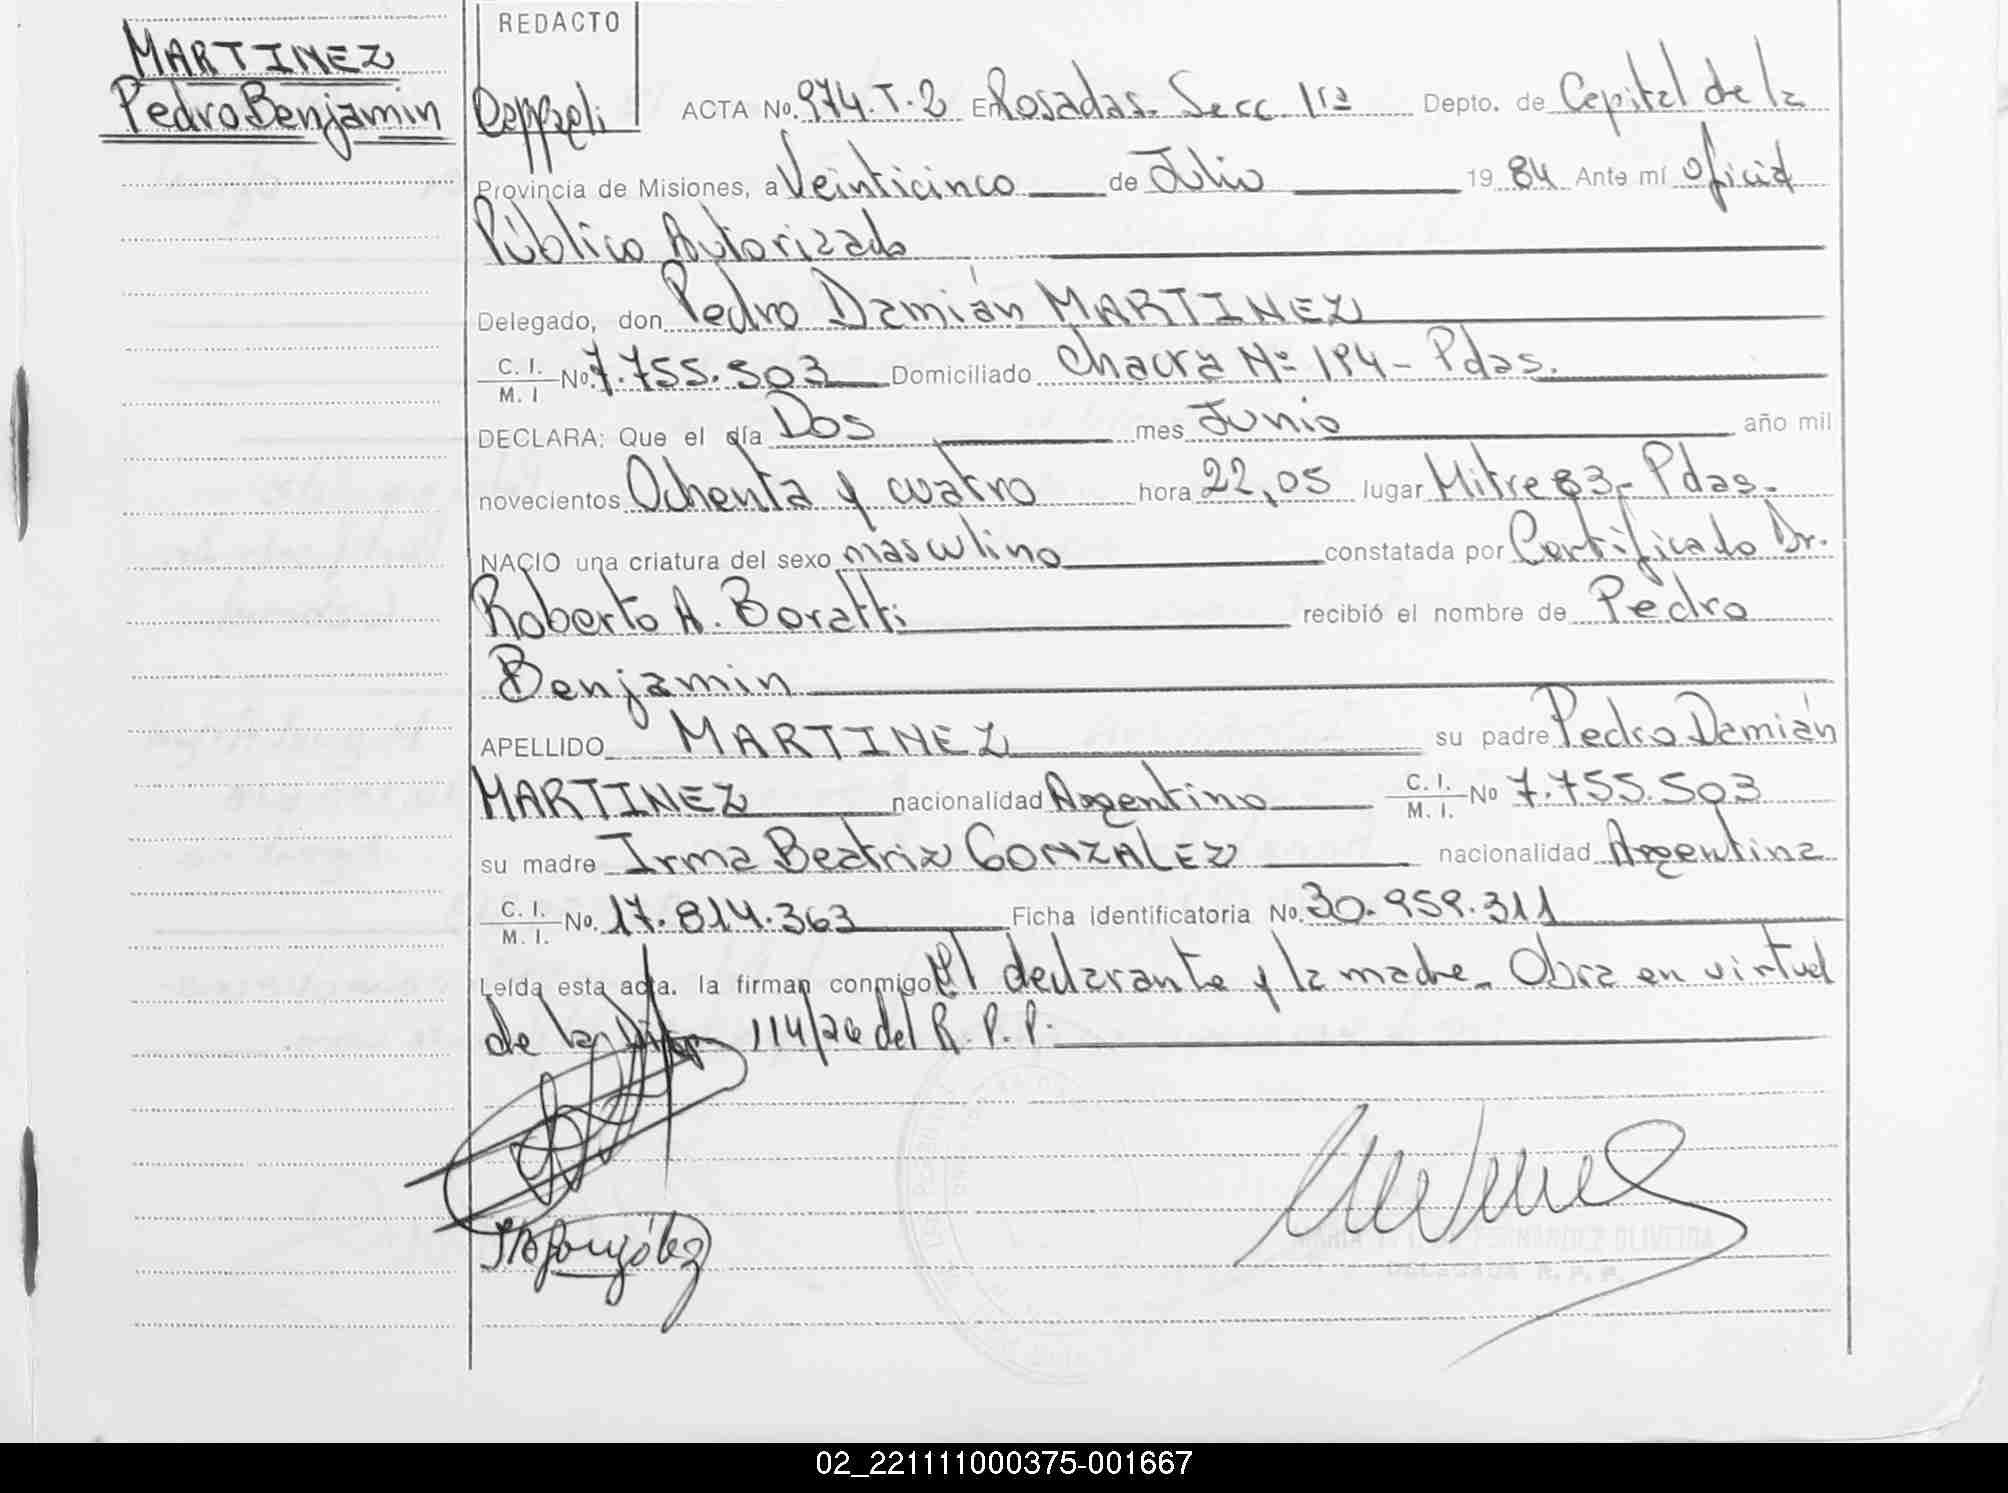 MARTINEZ
Pedro Benjamin
REDACTO
ACTA No. 974.T.2 En Posadas. Secc. 1ra Depto. de Capital de la
Provincia de Misiones, a Veinticinco de Julio 19 84 Ante mí oficial
Público Autorizado
Delegado, don Pedro Damián MARTINEZ
C. I. / M. I No 7.755.503 Domiciliado Chacra Nº 194 - Pdas.
DECLARA: Que el día Dos mes Junio año mil
novecientos Ochenta y cuatro hora 22,05 lugar Mitre 83 - Pdas.
NACIO una criatura del sexo masculino constatada por Certificado Dr.
Roberto A. Boratti recibió el nombre de Pedro
Benjamin
APELLIDO MARTINEZ su padre Pedro Damián
MARTINEZ nacionalidad Argentino C. I. / M. I. No 7.755.503
su madre Irma Beatriz GONZALEZ nacionalidad Argentina
C. I. / M. I. No. 17.814.363 Ficha identificatoria No. 30.959.311
Leída esta acta. la firman conmigo el declarante y la madre. Obra en virtud
de la 114/26 del R. P. P.
DELEGADA R. P. P.
02_221111000375-001667